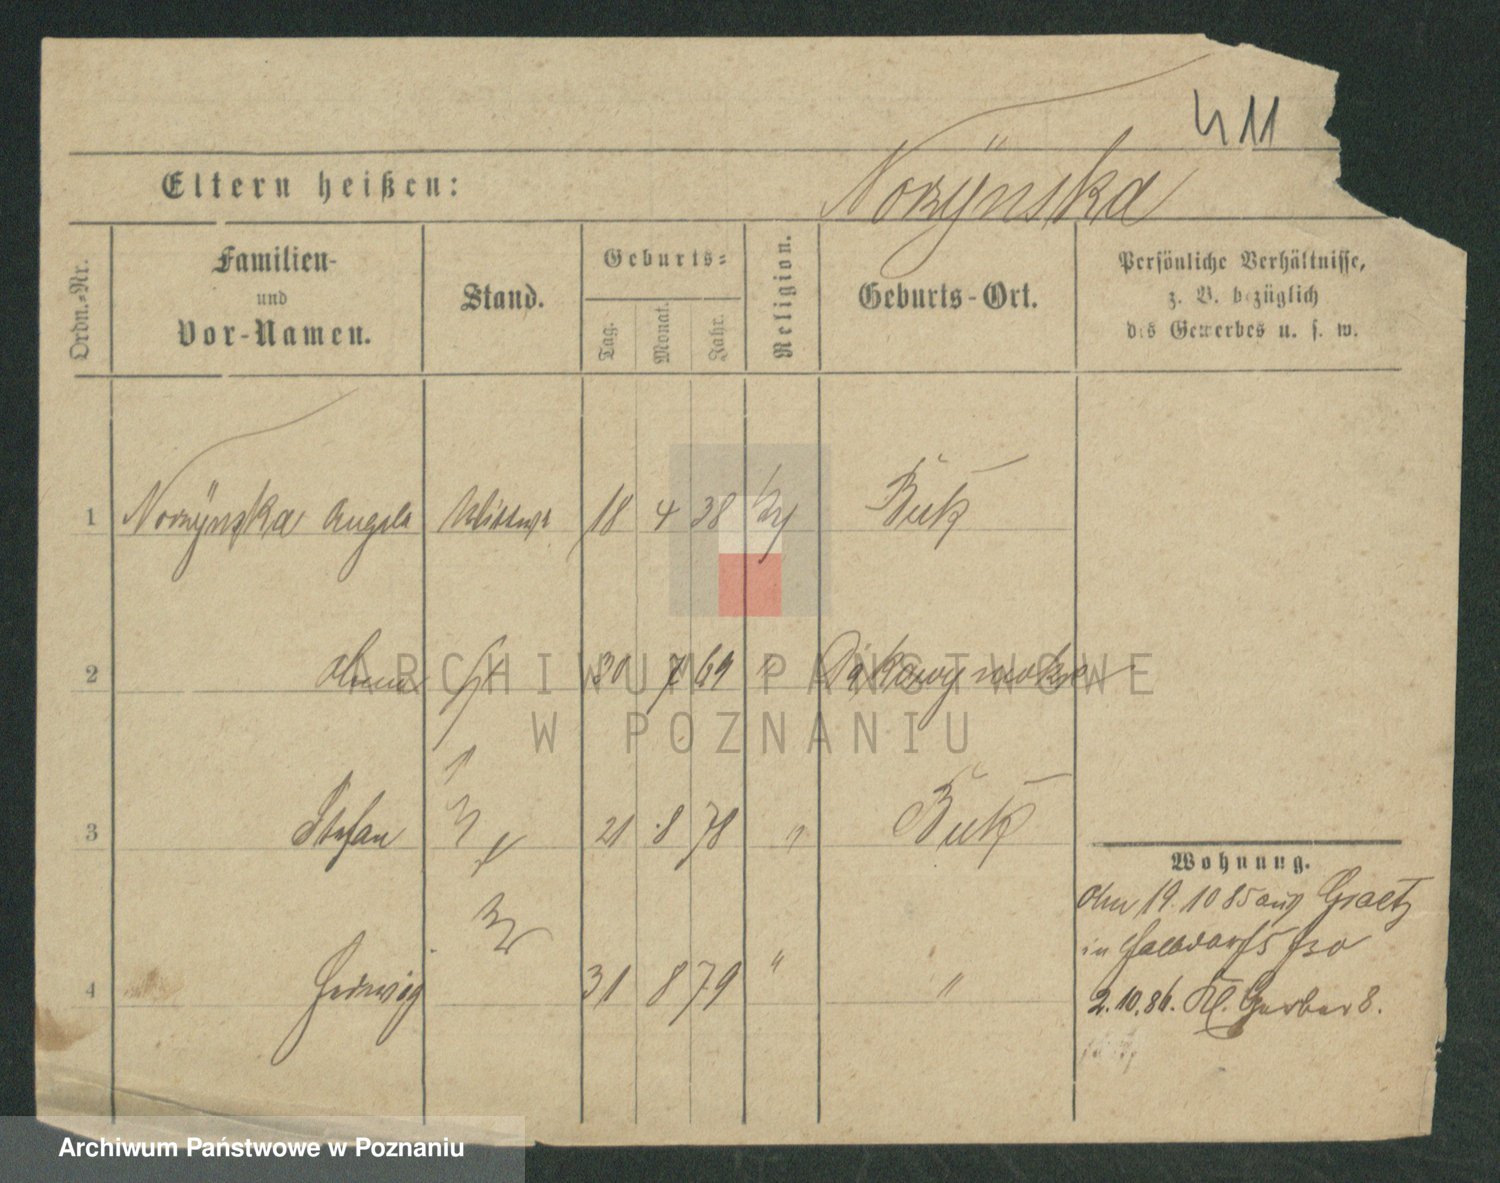 411
Eltern heißen:
Norzÿnska
Ordn.-Nr.
Familien-
und
Vor-Namen.
Stand.
Geburts-
Tag.
Monat.
Jahr.
Religion.
Geburts-Ort.
Persönliche Verhältnisse,
z. B. bezüglich
des Gewerbes u. s. w.
1 Norzÿnska Angela Wittwe 18 4 38 Buk
2 30 7 69 "
3 Stefan 21 8 78 " Buk
4 Hedwig 31 8 79 " "
Wohnung.
19. 10 85 aus Graetz
in
2. 10. 86. Kl. Gerber 8.
ARCHIWUM PAŃSTWOWE
W POZNANIU
Archiwum Państwowe w Poznaniu